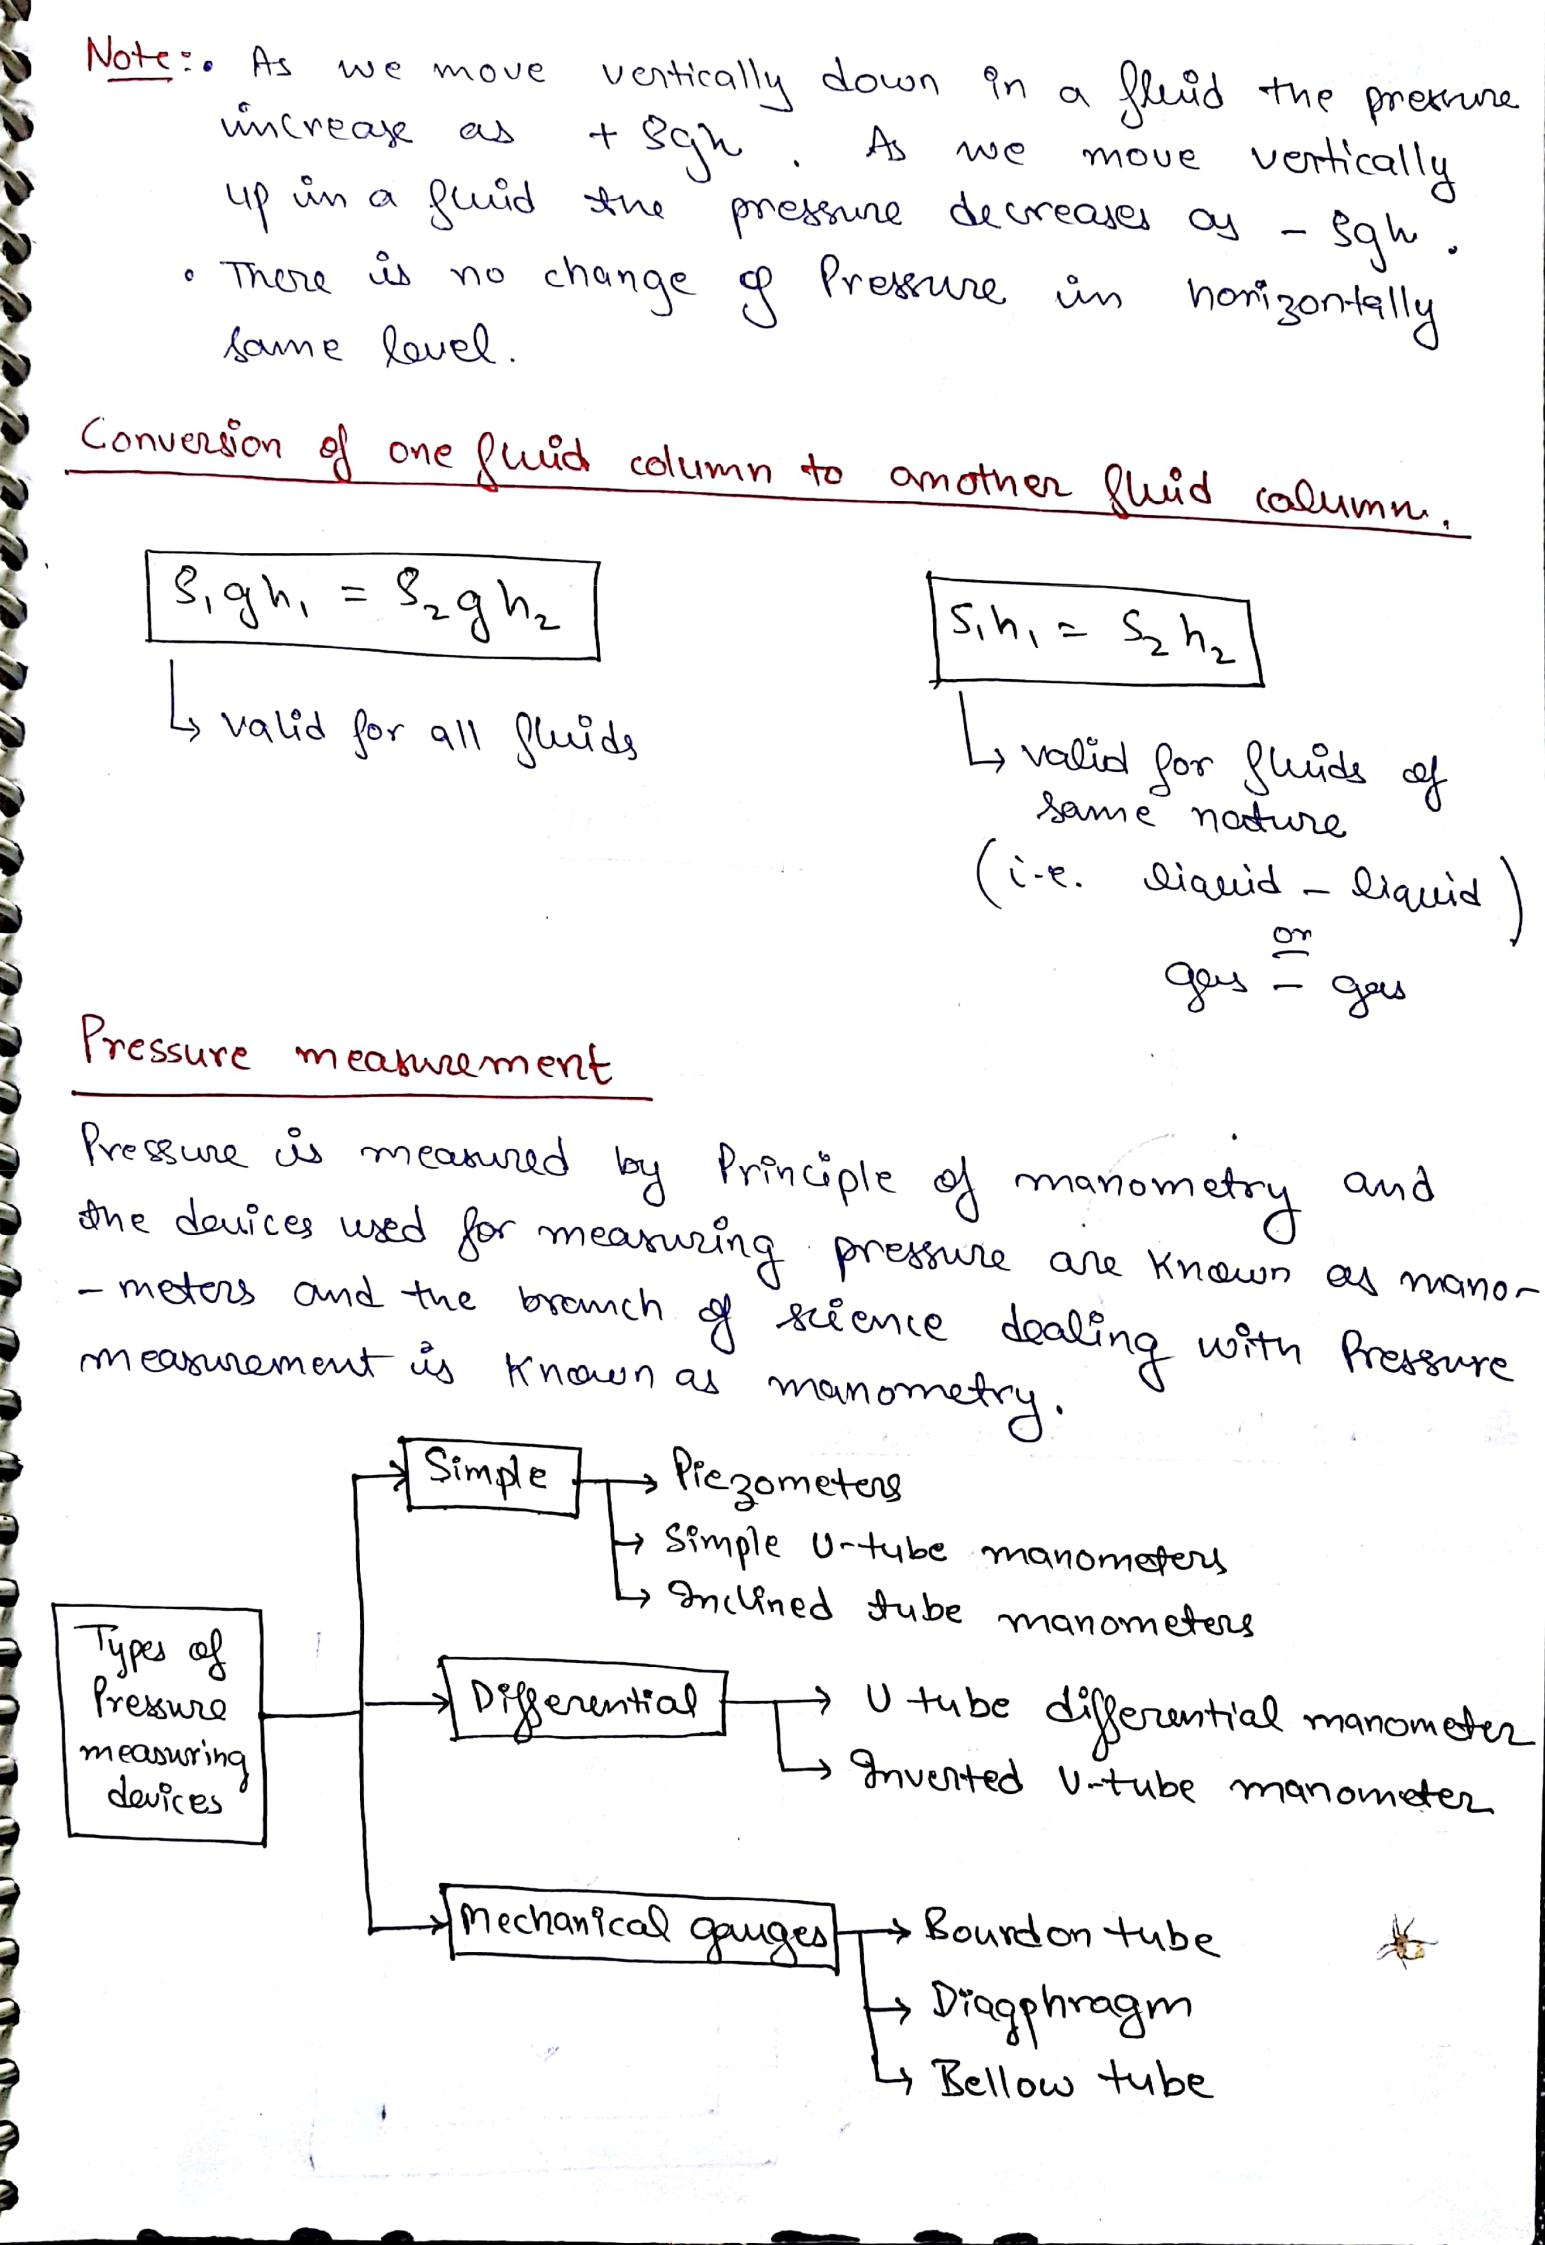 Note:• As we move vertically down in a fluid the pressure
increase as + ρgh . As we move vertically
up in a fluid the pressure decreases as - ρgh .
• There is no change of Pressure in horizontally
same level.
Conversion of one fluid column to another fluid column.
ρ₁gh₁ = ρ₂gh₂
S₁h₁ = S₂h₂
↳ valid for all fluids
↳ valid for fluids of
same nature
(i.e. liquid - liquid)
or
gas - gas
Pressure measurement
Pressure is measured by Principle of manometry and
the devices used for measuring pressure are known as mano-
- meters and the branch of science dealing with Pressure
measurement is known as manometry.
Simple → Piezometers
→ Simple U-tube manometers
↳ Inclined tube manometers
Types of
Pressure
measuring
devices
Differential → U tube differential manometer
↳ Inverted U-tube manometer
Mechanical gauges → Bourdon tube
→ Diagphragm
↳ Bellow tube